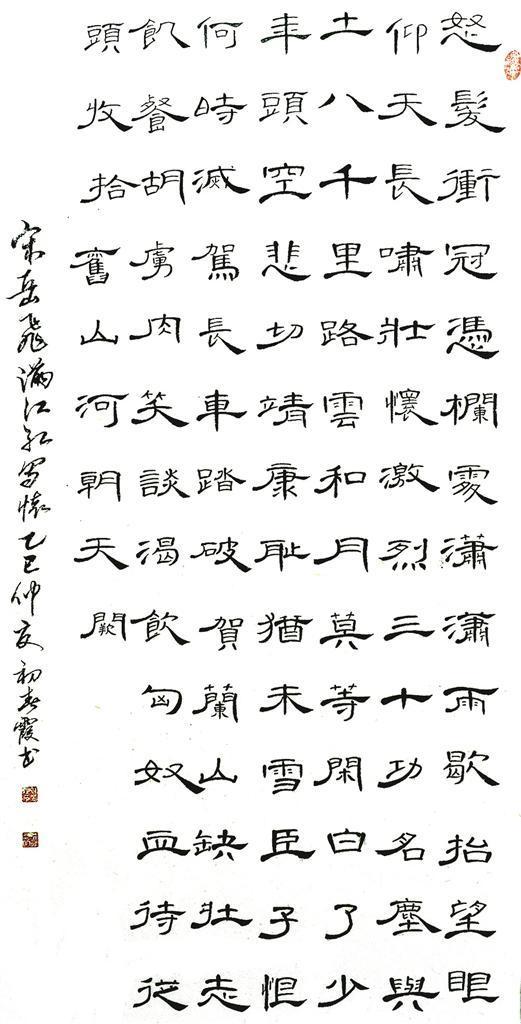 怒髮衝冠憑欄處瀟瀟雨歇抬望眼
仰天長嘯壯懷激烈三十功名塵與
土八千里路雲和月莫等閑白了少
年頭空悲切靖康耻猶未雪臣子恨
何時滅駕長車踏破賀蘭山缺壯志
飢餐胡虜肉笑談渴飲匈奴血待從
頭收拾舊山河朝天闕
宋岳飛滿江紅寫懷乙巳仲夏初春霞書